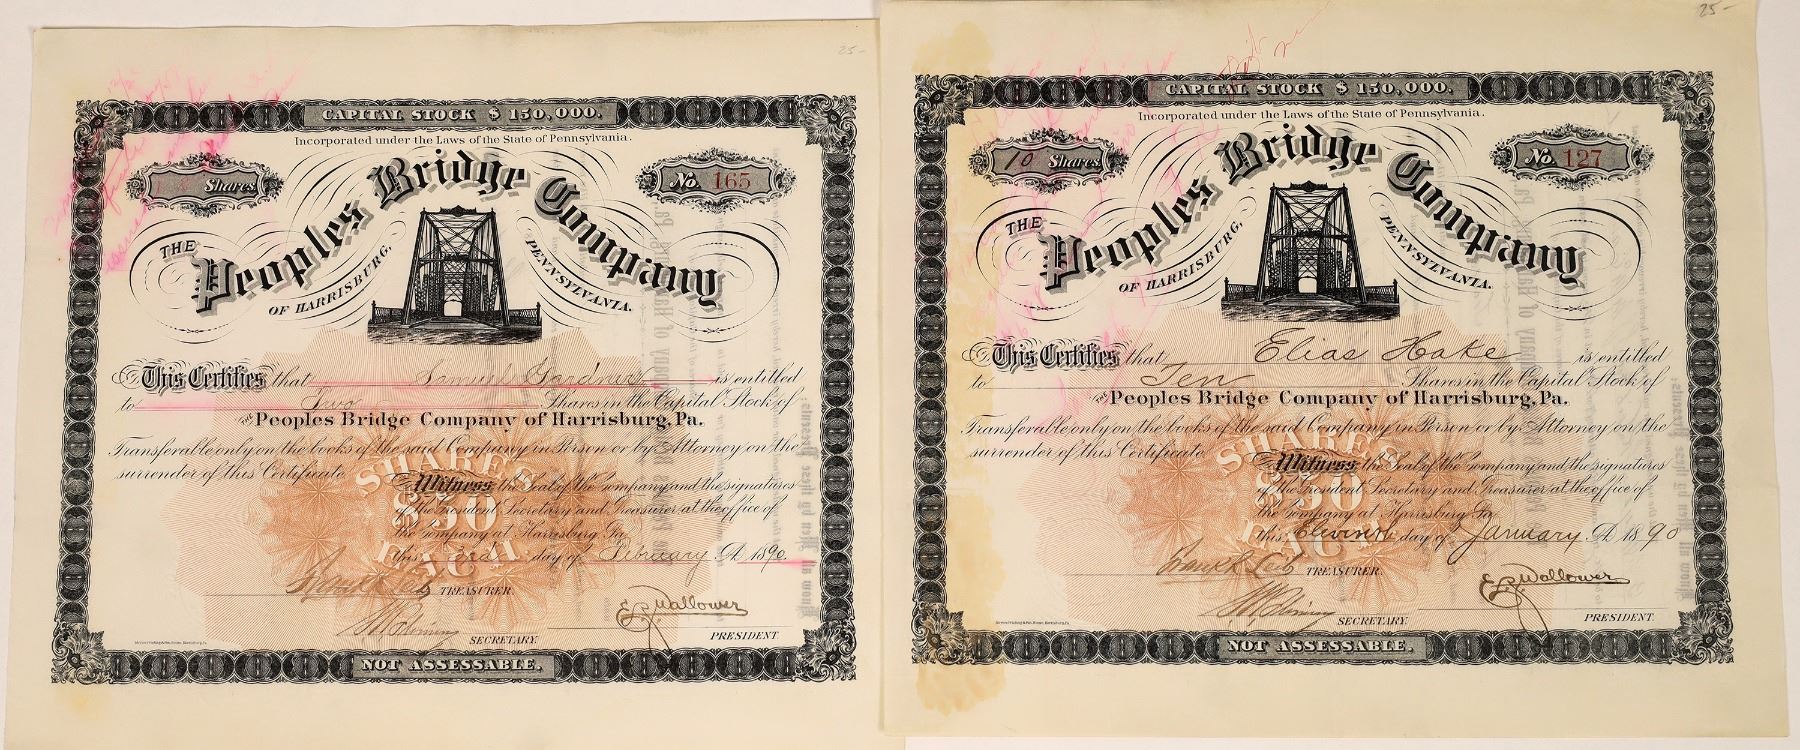 25-
CAPITAL STOCK $ 150,000.
Incorporated under the Laws of the State of Pennsylvania.
Shares
No. 165
THE Peoples Bridge Company
OF HARRISBURG, PENNSYLVANIA.
This Certifies that Samuel Goodman is entitled
to Two Shares in the Capital Stock of
THE Peoples Bridge Company of Harrisburg, Pa.
Transferable only on the books of the said Company in Person or by Attorney on the
surrender of this Certificate
SHARES $50 EACH
In Witness the Seal of the Company and the signatures
of the President Secretary and Treasurer at the office of
the Company at Harrisburg Pa
this 3rd day of February A 1890.
TREASURER.
E. Z. Wallower
SECRETARY.
PRESIDENT.
NOT ASSESSABLE.
25-
CAPITAL STOCK $ 150,000.
Incorporated under the Laws of the State of Pennsylvania.
10 Shares
No. 127
THE Peoples Bridge Company
OF HARRISBURG, PENNSYLVANIA.
This Certifies that Elias Hake is entitled
to Ten Shares in the Capital Stock of
THE Peoples Bridge Company of Harrisburg, Pa.
Transferable only on the books of the said Company in Person or by Attorney on the
surrender of this Certificate
SHARES $50 EACH
In Witness the Seal of the Company and the signatures
of the President Secretary and Treasurer at the office of
the Company at Harrisburg Pa
this Eleventh day of January A 1890
TREASURER.
E. Z. Wallower
SECRETARY.
PRESIDENT.
NOT ASSESSABLE.